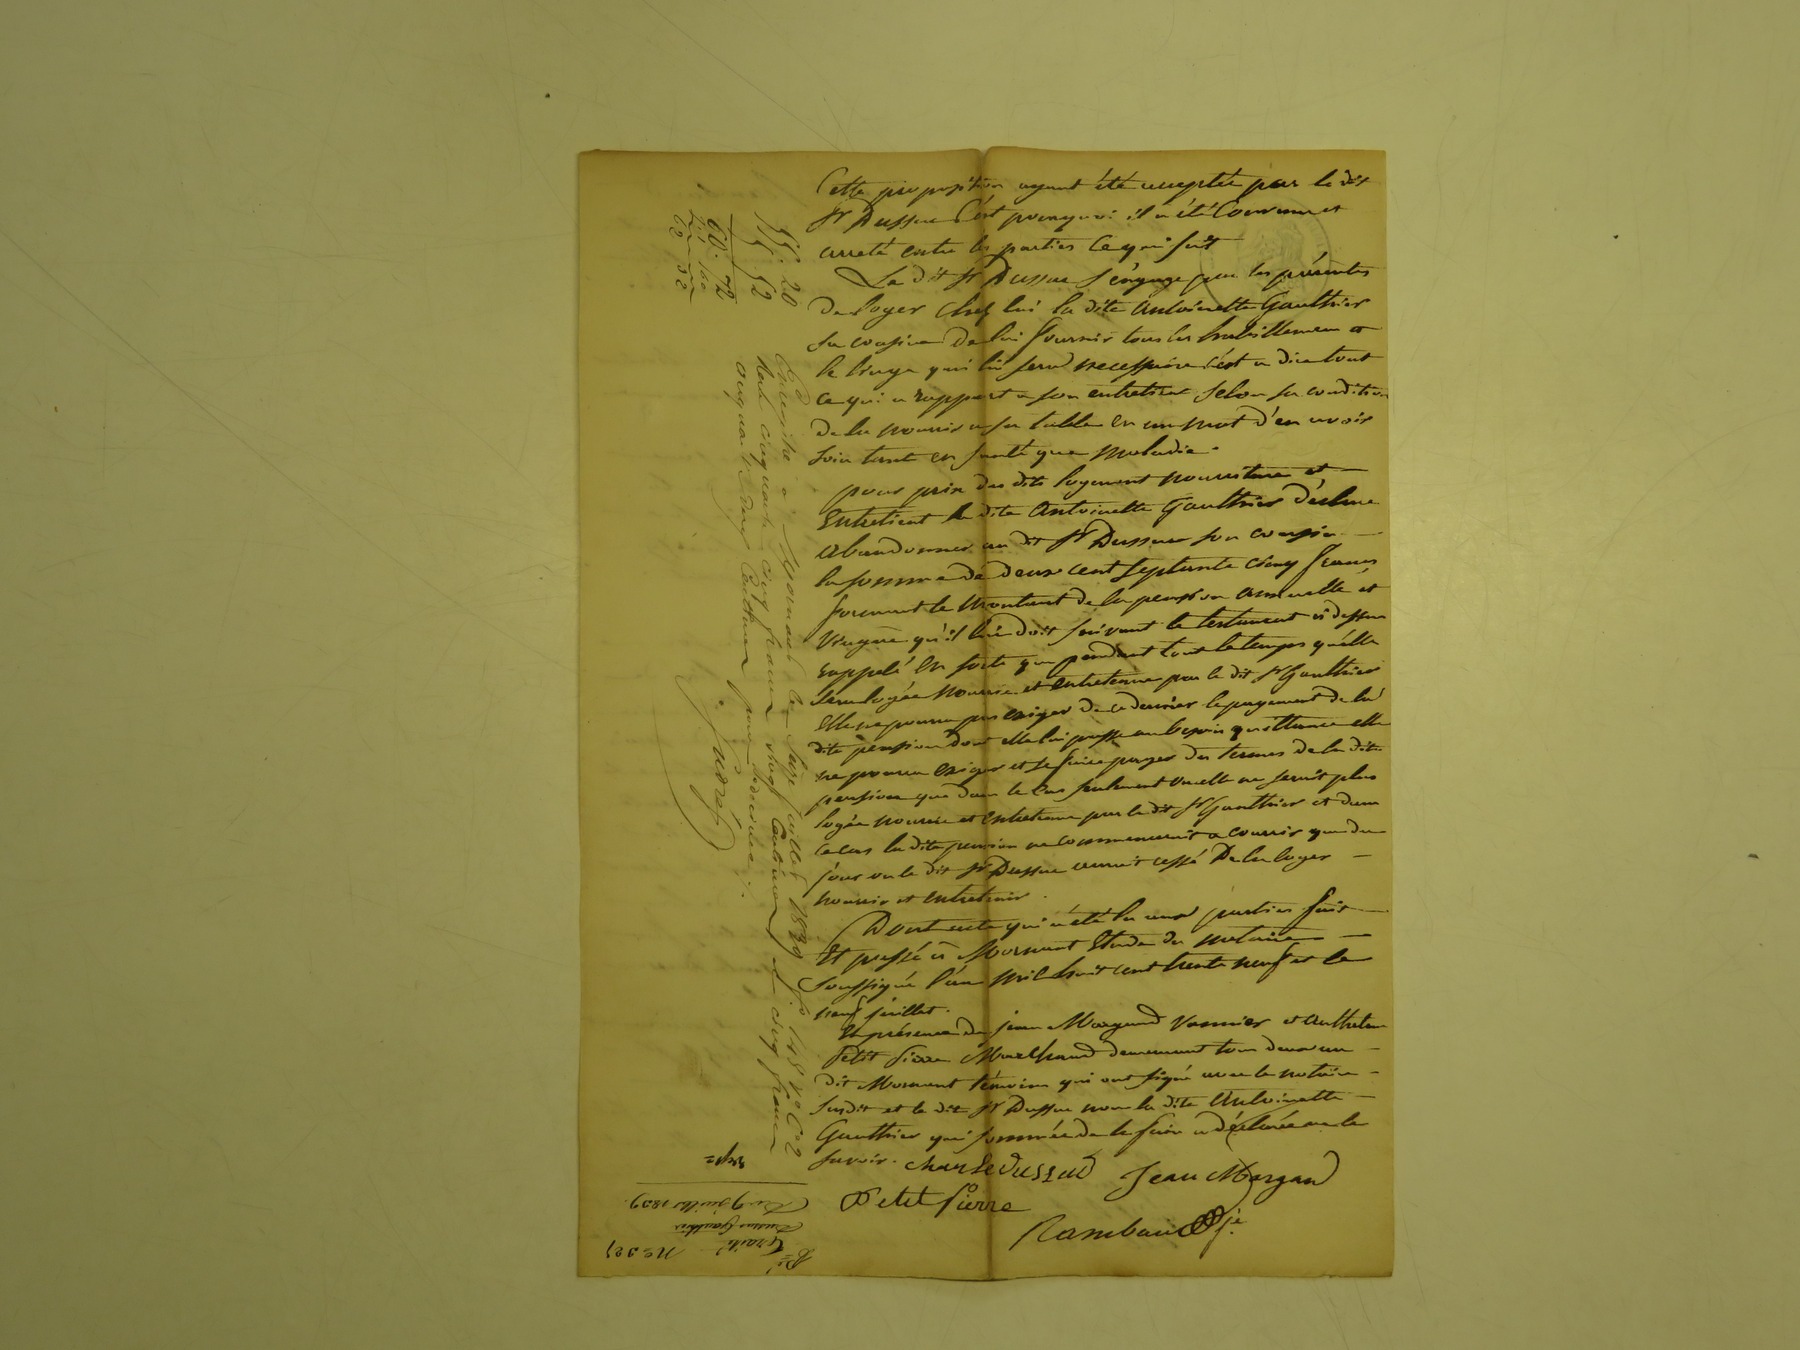 Cette proposition ayant été acceptée par le dit
Sr Dussuc C'est pourquoi il a été Convenu et
arreté entre les parties Ce qui suit
Le dit Sr Dussuc S'engage par les présentes
De loger chez lui la dite Antoinette Gaulthier
sa cousine De lui fournir tous les habillemens et
le linge qui lui sera necessaire c'est a dire tout
ce qui a rapport a son entretient selon sa condition
De la nourrir a sa table en un mot d'en avoir
soin tant en santé que maladie.
pour prix des dits logement nourriture et
Entretient la dite Antoinette Gaulthier déclare
abandonner au dit Sr Dussuc son cousin
la somme de deux cent septante cinq francs
formant le Montant de la pension annuelle et
viagère qu'il lui doit suivant le testament ci dessus
rappelé en sorte que pendant tout le temps qu'elle
sera logée nourrie et entretenue par le dit Sr Gaulthier
elle ne pourra pas exiger de ce dernier le payement de la
dite pension dont elle lui passe au besoin quittance elle
ne pourra exiger et se faire payer des termes de la dite
pension que dans le cas seulement ou elle ne serait plus
logée nourrie et entretenue par le dit Sr Gaulthier et dans
ce cas la dite pension ne commencerait a courrir que du
jour ou le dit Sr Dussuc aurait cessé De la loger
nourrir et entretenir.
Dont acte qui a été lu aux parties fait
Et passé à Mornant Etude du notaire
Soussigné l'an Mil huit cent trente neuf et le
neuf juillet.
En présence de jean Morgand Vannier et
Petit Pierre Marchand demeurant tous deux au
dit Mornant témoins qui ont signé avec le notaire
susdit et le dit Sr Dussuc non la dite Antoinette
Gaulthier qui sommée de le faire a déclarée ne le
savoir. Charle dussuc Jean Morgand
Petit Pierre
Rambaud
55. 20
5. 52
60. 72
Enregistré à Mornant le Seize juillet 1839 fo 148 Vo Ce 2
Reçu cinquante cinq francs vingt Centimes et cinq francs
cinquante deux Centimes pour décime.
No 321
Traité
Dussuc Gaulthier
Du 9 juillet 1839.
exp=